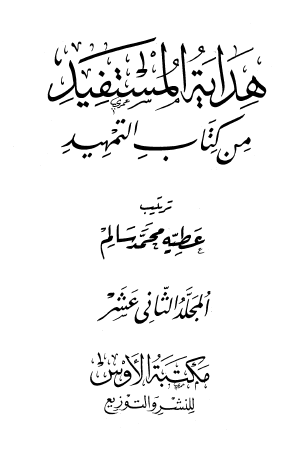 هِدَايَةُ المُسْتَفِيدِ
مِن كِتَابِ التَّمْهِيدِ
ترتيب
عَطِيَّه مُحَمَّد سَالِم
المُجَلَّدُ الثَّانِي عَشَر
مَكتَبَةُ الأَوْس
للنشر والتوزيع